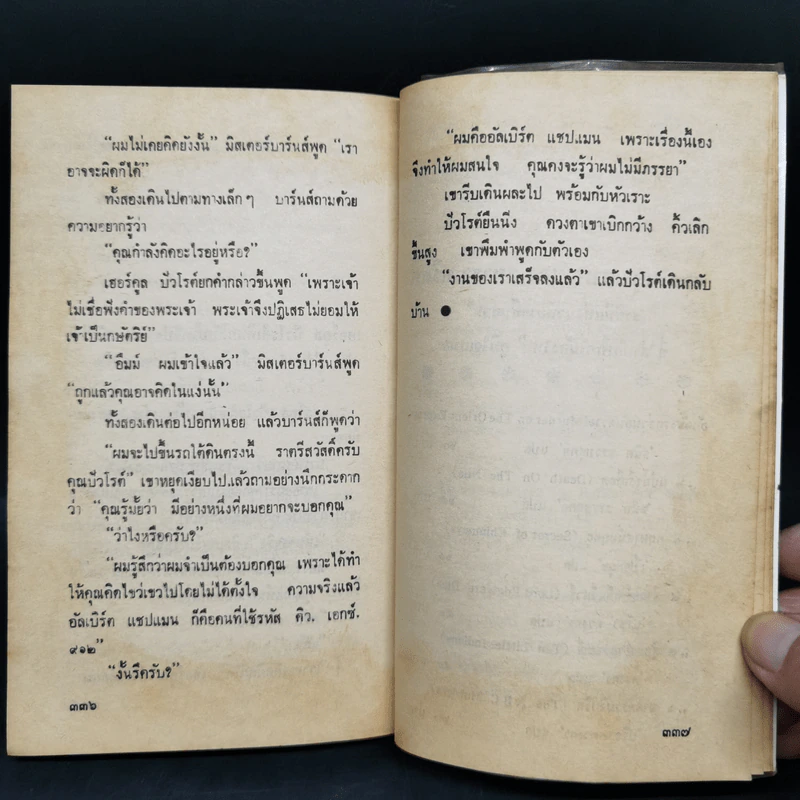 “ผมไม่เคยคิดยังงั้น” มิสเตอร์บาร์นส์พูด “เรา
อาจจะผิดก็ได้”
ทั้งสองเดินไปตามทางเล็กๆ บาร์นส์ถามด้วย
ความอยากรู้ว่า
“คุณกำลังคิดอะไรอยู่หรือ?”
เฮอร์คูล ปัวโรต์ยกคำกล่าวขึ้นพูด “เพราะเจ้า
ไม่เชื่อฟังคำของพระเจ้า พระเจ้าจึงปฏิเสธไม่ยอมให้
เจ้าเป็นกษัตริย์”
“อืมม์ ผมเข้าใจแล้ว” มิสเตอร์บาร์นส์พูด
“ถูกแล้วคุณอาจคิดในแง่นั้น”
ทั้งสองเดินต่อไปอีกหน่อย แล้วบาร์นส์ก็พูดว่า
“ผมจะไปขึ้นรถใต้ดินตรงนี้ ราตรีสวัสดิ์ครับ
คุณปัวโรต์” เขาหยุดเงียบไป.แล้วถามอย่างนึกกระดาก
ว่า “คุณรู้มั้ยว่า มีอย่างหนึ่งที่ผมอยากจะบอกคุณ”
“ว่าไงหรือครับ?”
“ผมรู้สึกว่าผมจำเป็นต้องบอกคุณ เพราะได้ทำ
ให้คุณคิดไขว่เขวไปโดยไม่ได้ตั้งใจ ความจริงแล้ว
อัลเบิร์ต แชปแมน ก็คือคนที่ใช้รหัส คิว. เอกซ์.
๙๑๒”
“งั้นรึครับ?”
๓๓๖
“ผมคืออัลเบิร์ต แชป.แมน เพราะเรื่องนี้เอง
จึงทำให้ผมสนใจ คุณคงจะรู้ว่าผมไม่มีภรรยา”
เขารีบเดินผละไป พร้อมกับหัวเราะ
ปัวโรต์ยืนนิ่ง ดวงตาเขาเบิกกว้าง คิ้วเลิก
ขึ้นสูง เขาพึมพำพูดกับตัวเอง
“งานของเราเสร็จลงแล้ว” แล้วปัวโรต์เดินกลับ
บ้าน ●
๓๓๗